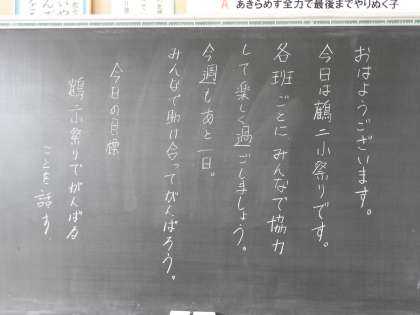 A あきらめず全力で最後までやりぬく子
おはようございます。
今日は鶴二小祭りです。
各班ごとにみんなで協力
して楽しく過ごしましょう。
今週もあと一日。
みんなで助け合ってがんばろう。
今日の目標
鶴二小祭りでがんばる
ことを話す。